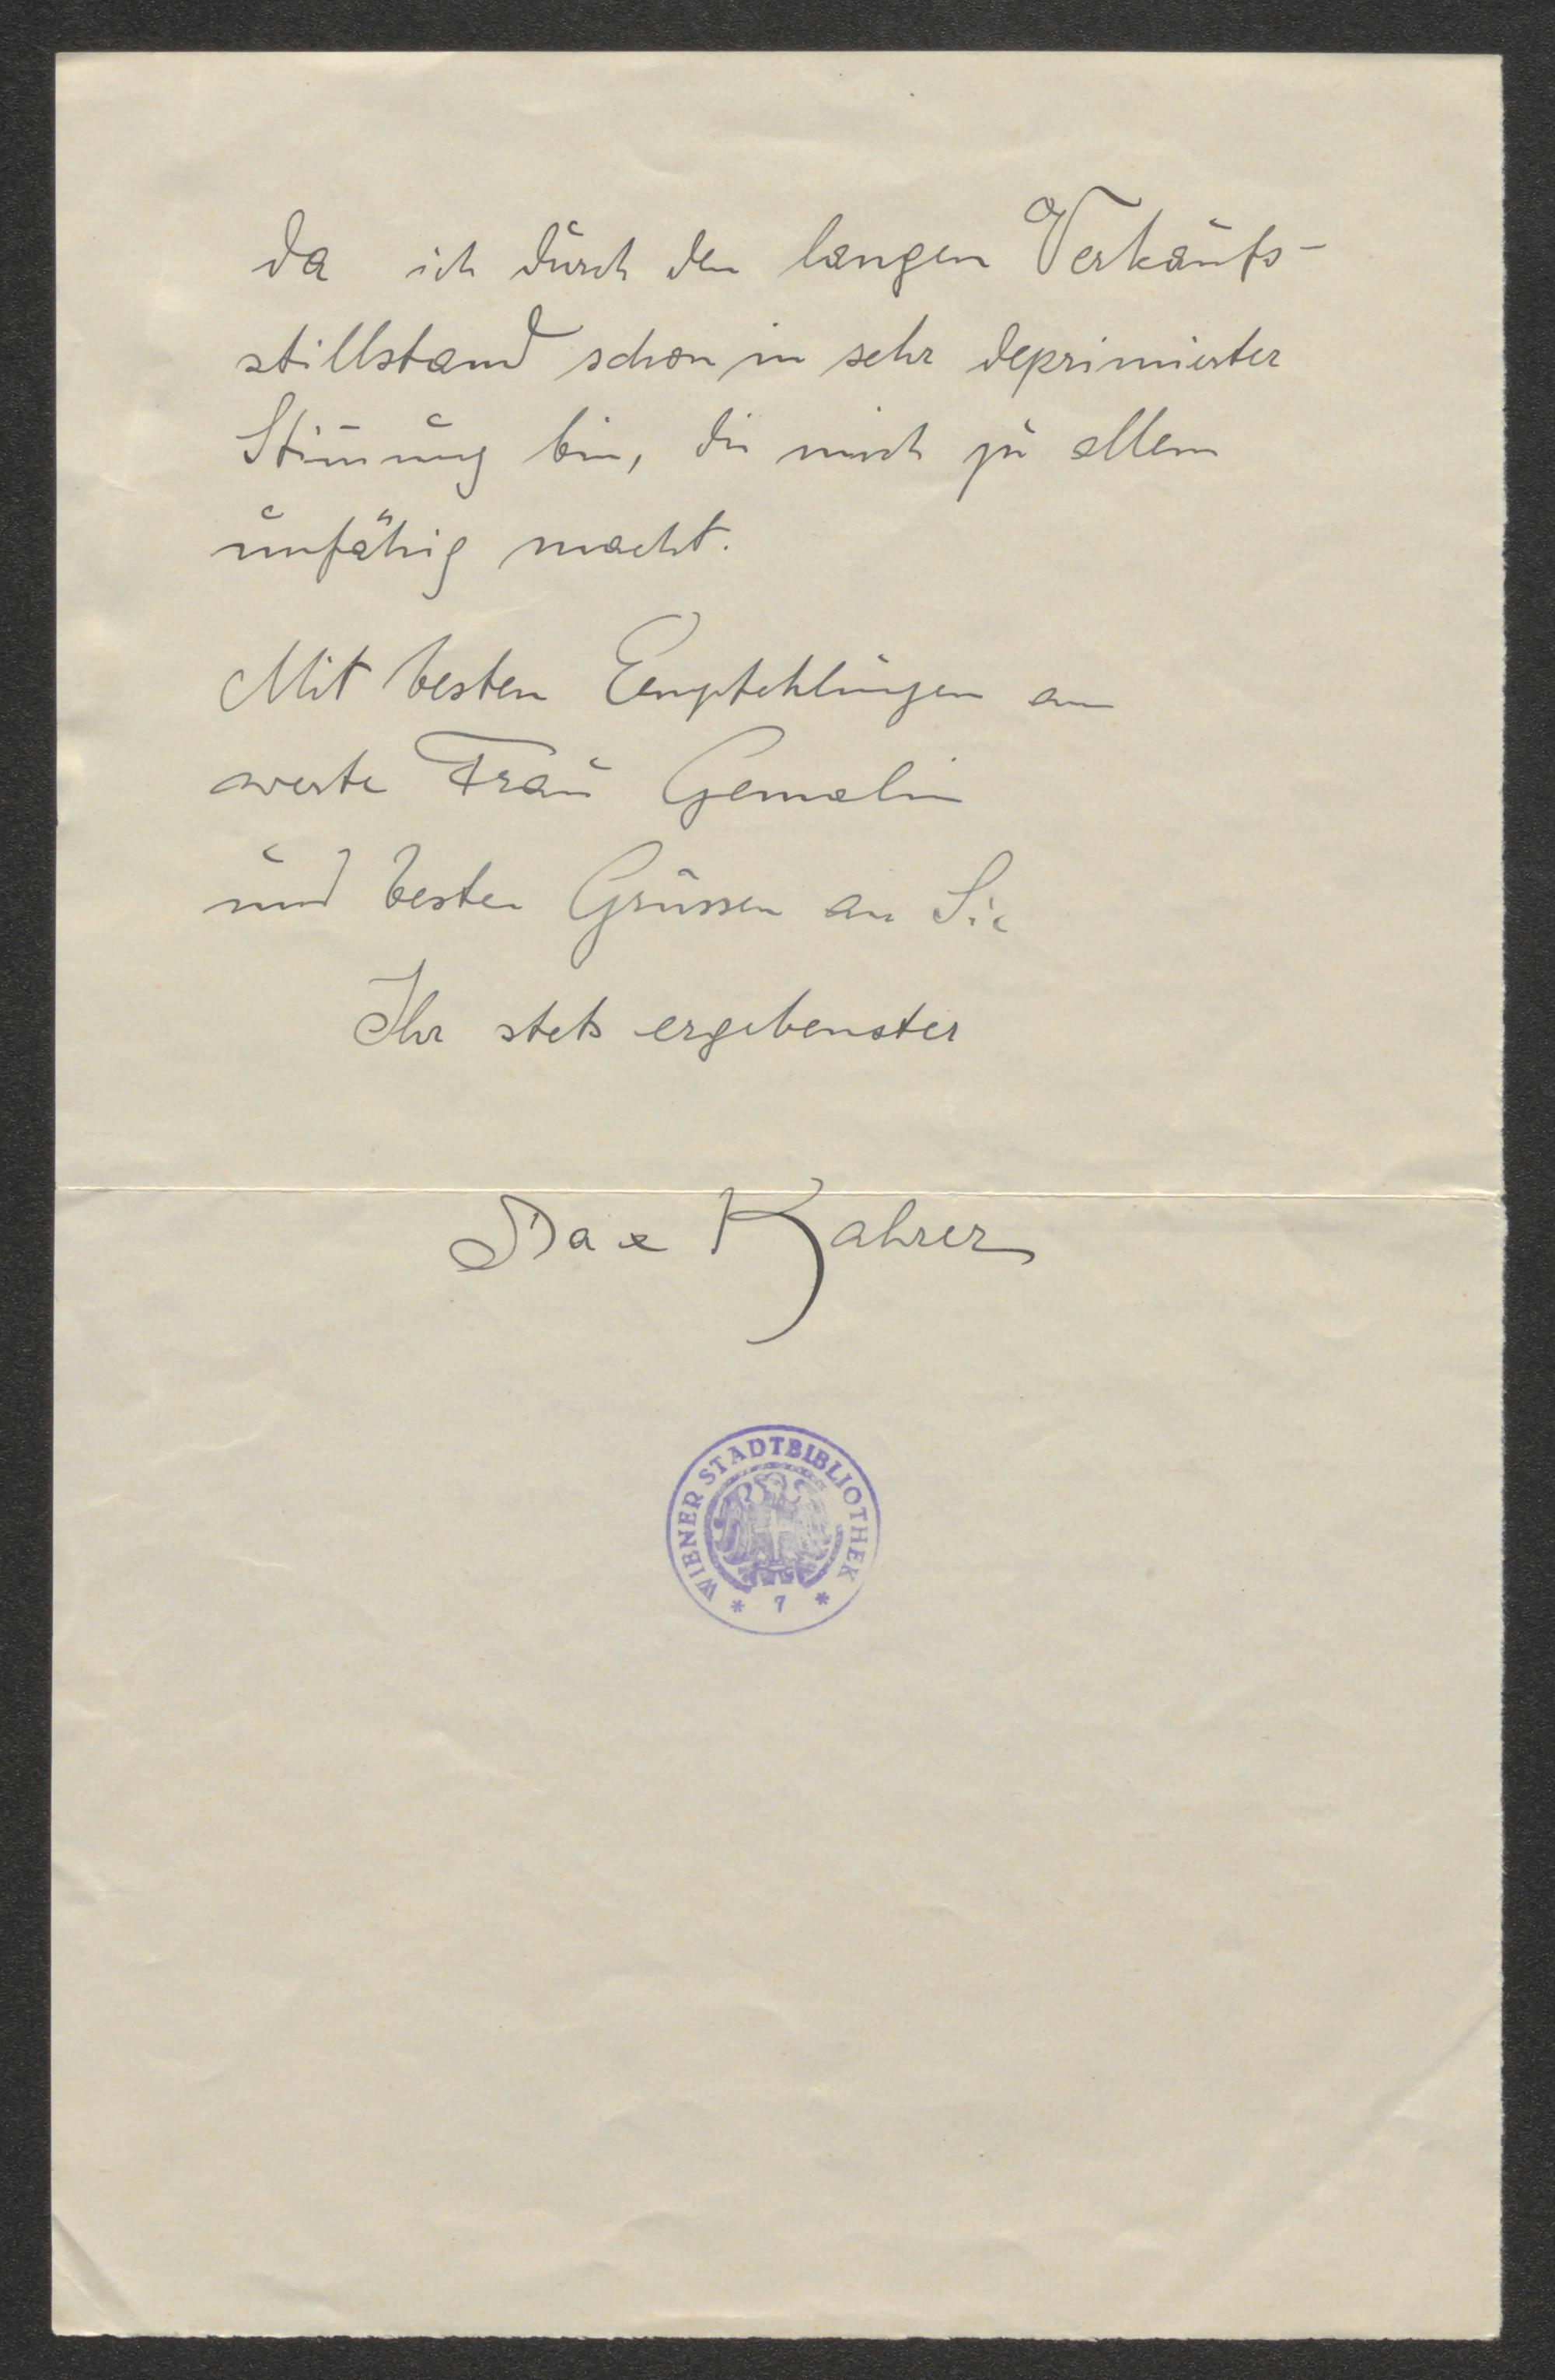 da ich durch den langen Verkaufs-
stillstand schon in sehr deprimierter
Stim̄ung bin, die mich zu allem
unfähig macht.
Mit besten Empfehlungen an
werte Frau Gemalin
und besten Grüssen an Sie
Ihr stets ergebenster
Max Kahrer
WIENER STADTBIBLIOTHEK
* 7 *